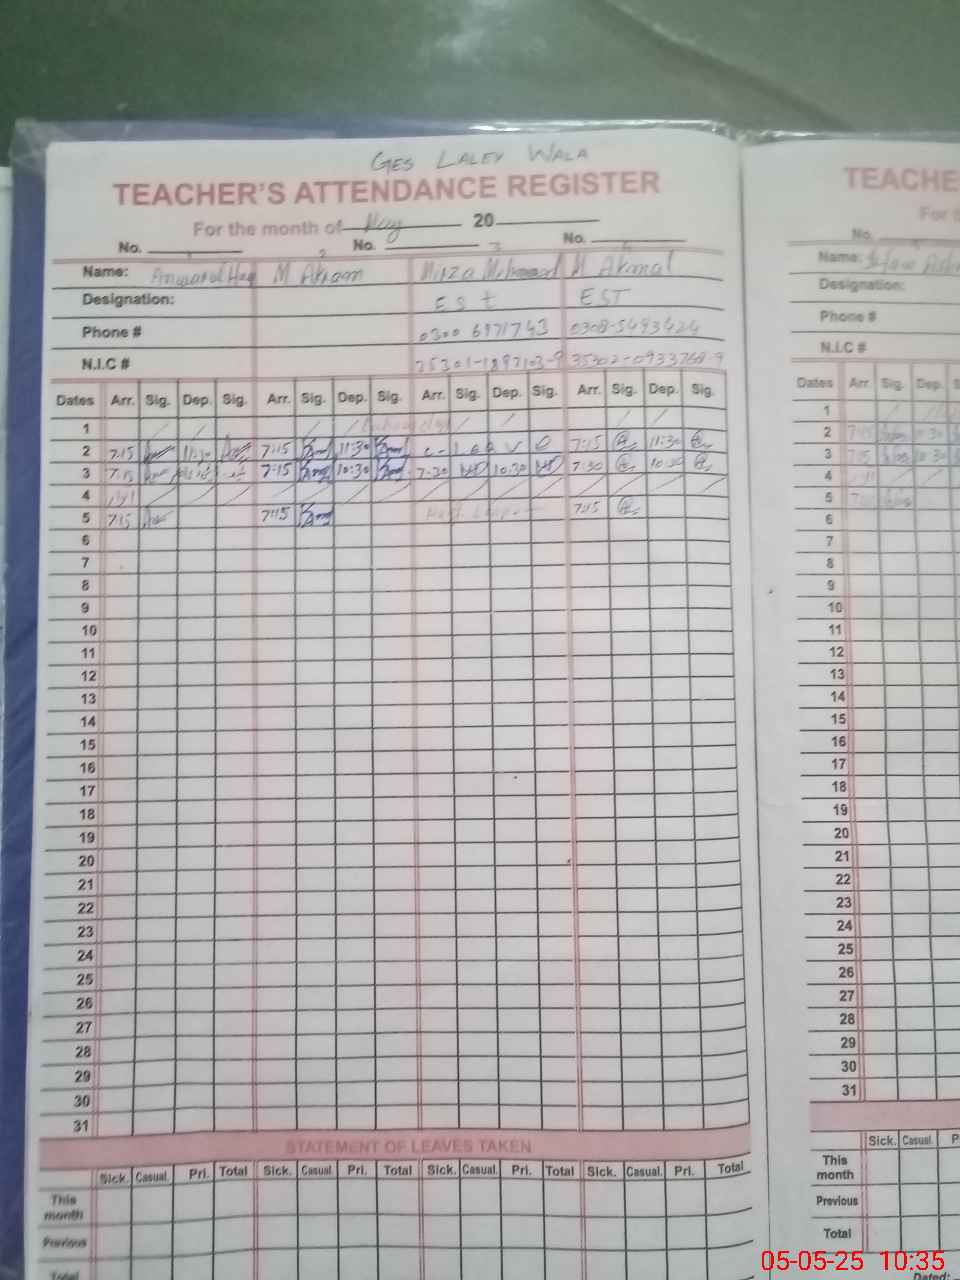 GES LALEY WALA
TEACHER'S ATTENDANCE REGISTER
For the month of May 20
No. No. No.
Name: Anwarul Haq M Akram Mirza M Akmal
Designation: EST EST
Phone # 0300 6971743 0308-5493424
N.I.C #
Dates Arr. Sig. Dep. Sig. Arr. Sig. Dep. Sig. Arr. Sig. Dep. Sig. Arr. Sig. Dep. Sig.
1
2 7:15 11:30 7:15 11:30 C- Leave 7:15 11:30
3 7:15 7:15 10:30 7:30 10:30 7:30 10:30
4
5 7:15 7:15 7:15
6
7
8
9
10
11
12
13
14
15
16
17
18
19
20
21
22
23
24
25
26
27
28
29
30
31
STATEMENT OF LEAVES TAKEN
Sick. Casual. Pri. Total Sick. Casual. Pri. Total Sick. Casual. Pri. Total Sick. Casual. Pri. Total
This month
Previous
Total
TEACHE
For t
No.
Name:
Designation:
Phone #
N.I.C #
Dates Arr. Sig. Dep. S
1
2 7:15 10:30
3 7:15 10:30
4
5
6
7
8
9
10
11
12
13
14
15
16
17
18
19
20
21
22
23
24
25
26
27
28
29
30
31
Sick. Casual. P
This month
Previous
Total
Dated:
05-05-25 10:35